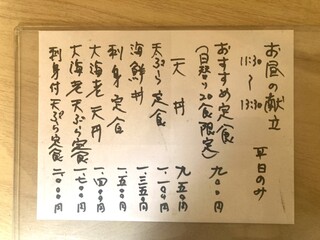 お昼の献立
11:30〜13:30
平日のみ
おすすめ定食
(日替り20食限定) 九〇〇円
天丼 九五〇円
天ぷら定食 一、一〇〇円
海鮮丼 一、三五〇円
刺身定食 一、五〇〇円
大海老天丼 一、四〇〇円
大海老天ぷら定食 一、七〇〇円
刺身付天ぷら定食 二、〇〇〇円